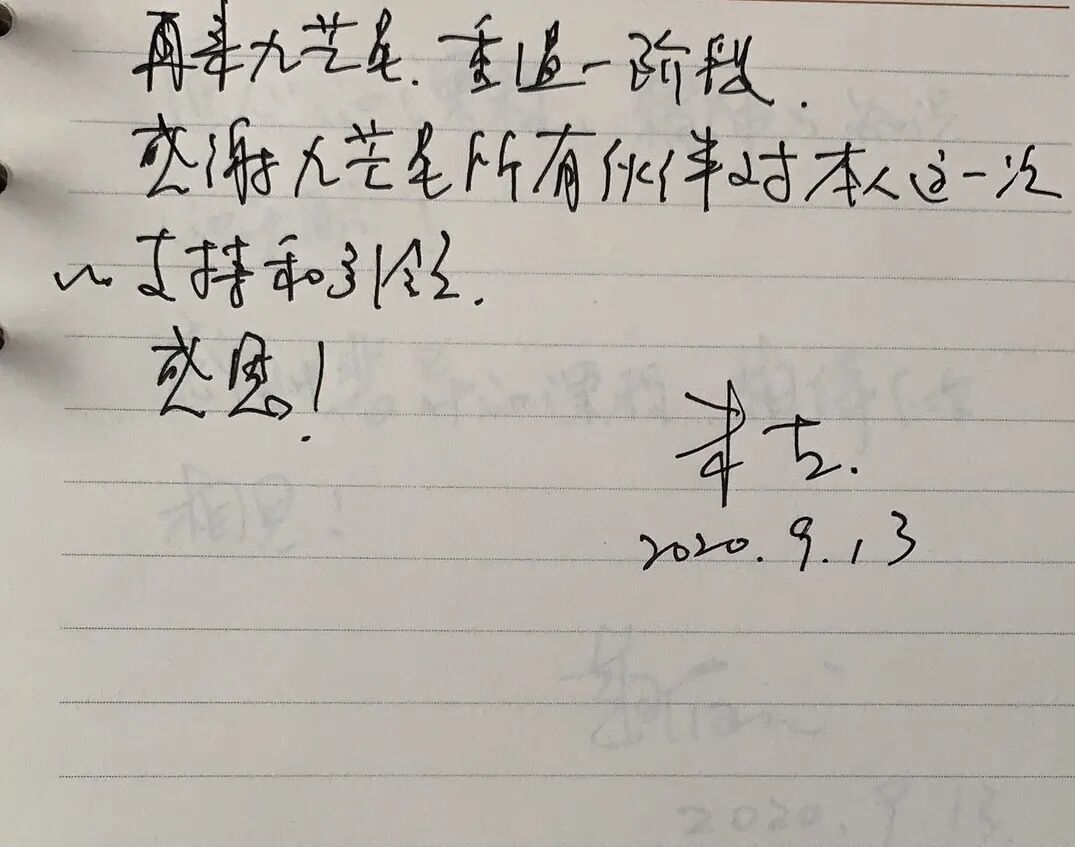 再来九芒星.重温一阶段.
感谢九芒星所有伙伴对本人这一次
的支持和引领.
感恩!
2020.9.13
2020.9.13